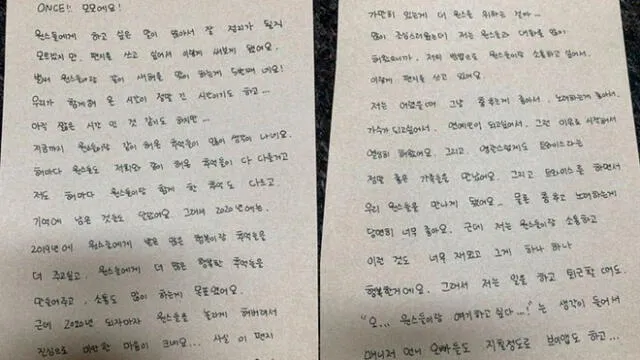 ONCE!! 모모에요!
원스들에게 하고 싶은 말이 많아서 잘 정리가 될지
모르겠지만, 편지를 쓰고 싶어서 이렇게 써보게 됐어요.
벌써 원스들이랑 같이 새해를 맞이 하는게 5번째네요!
우리가 함께해 온 시간이 정말 긴 시간이기도 하고...
아직 짧은 시간 인 것 같기도 하지만...
지금까지 원스들이랑 같이 해온 추억들이 많이 생각이 나네요.
해마다 원스들도 저희와 같이 해온 추억들이 다 다를거고
저도 해마다 원스들이랑 함께 한 추억도 다르고,
기억에 남은 것들도 많았어요. 그래서 2020년에는,
2019년에 원스들에게 받은 많은 행복이랑 추억들을
더 주고싶고, 원스들에게 더 많은 행복한 추억들을
만들어주고, 소통도 많이 하는게 목표였어요.
근데 2020년 되자마자 원스들을 놀라게 해버려서
진심으로 미안한 마음이 크네요... 사실 이 편지
가만히 있는게 더 원스를 위하는 걸까...
많이 조심스러웠는데 저는 원스들과 대화를 많이
해왔으니까, 저의 방법으로 원스들이랑 소통하고 싶어서,
이렇게 편지를 쓰고 있어요.
저는 어렸을때 그냥 춤추는게 좋아서, 노래하는게 좋아서,
가수가 되고싶어서, 연예인이 되고싶어서, 그런 이유로 시작해서
열심히 해왔어요. 그리고, 영광스럽게도 트와이스라는
정말 좋은 가족들을 만났어요. 그리고 트와이스를 하면서
우리 원스들을 만나게 됐어요... 물론 춤추고 노래하는게
당연히 너무 좋아요. 근데 저는 원스들이랑 소통하고
이런 것도 너무 재밌고 그게 하나 하나
행복한거에요. 그래서 저는 일을 하고 퇴근할 때도,
"오... 원스들이랑 얘기하고 싶다...!" 는 생각이 들어서
매니저 언니 오빠들도 지칠정도로 브이앱도 하고...